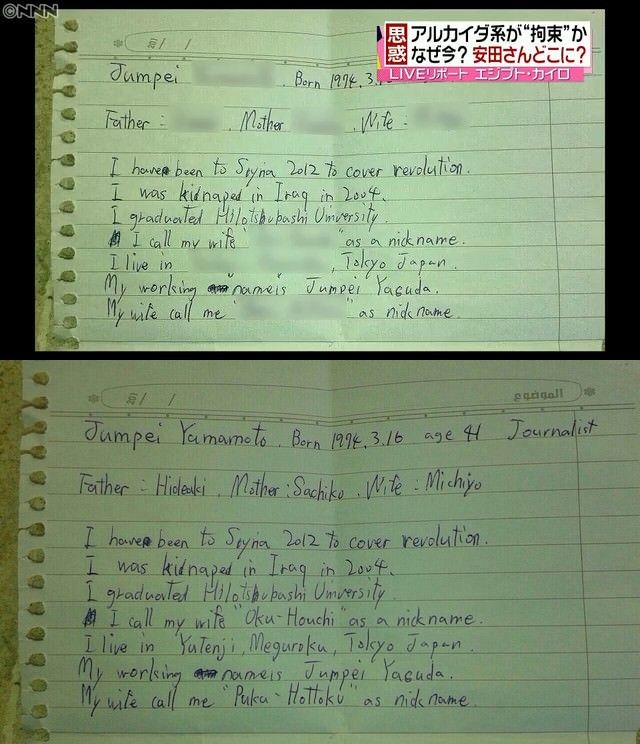 ©NNN
思惑 アルカイダ系が“拘束”か
なぜ今? 安田さんどこに?
LIVEリポート エジプト・カイロ
Jumpei Born 1974.3.16
Father = . Mother . Wife =
I have been to Syria 2012 to cover revolution.
I was kidnaped in Iraq in 2004.
I graduated Hitotsubashi University.
I call my wife " " as a nickname.
I live in , Tokyo Japan.
My working name is Jumpei Yasuda.
My wife call me " " as nickname.
الموضوع
Jumpei Yamamoto. Born 1974.3.16 age 41 Journalist
Father = Hideaki. Mother: Sachiko. Wife = Michiyo
I have been to Syria 2012 to cover revolution.
I was kidnaped in Iraq in 2004.
I graduated Hitotsubashi University.
I call my wife "Oku-Houchi" as a nickname.
I live in Yutenji, Meguroku, Tokyo Japan.
My working name is Jumpei Yasuda.
My wife call me "Puku-Hottoku" as nickname.